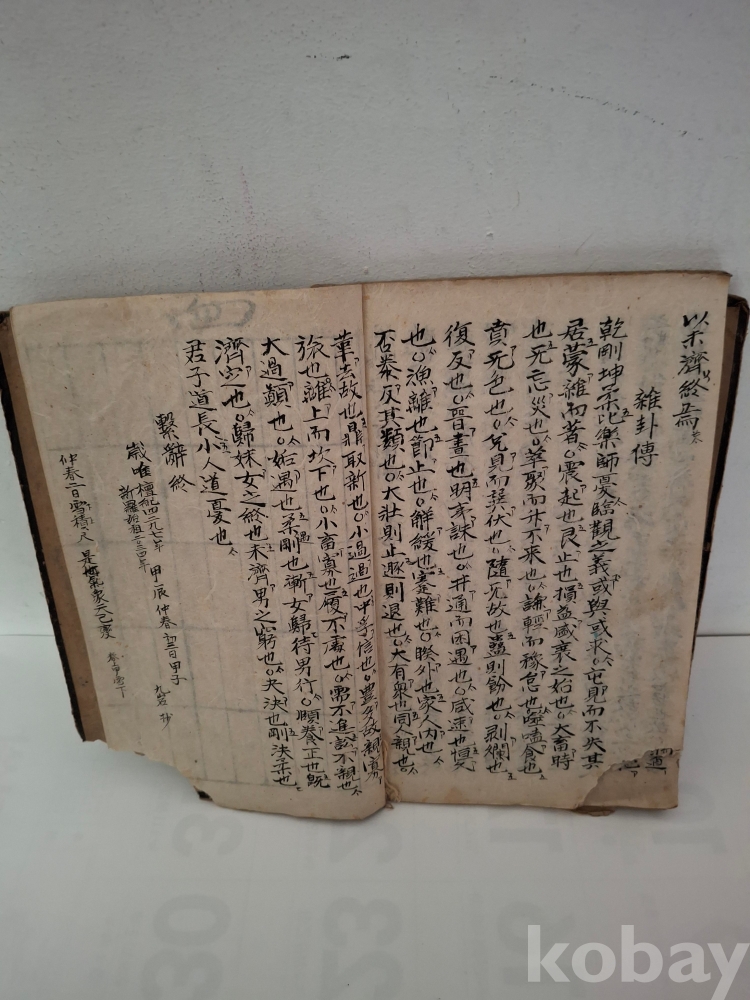 以未濟終焉
雜卦傳
乾剛坤柔比樂師憂臨觀之義或與或求○屯見而不失其
居蒙雜而著○震起也艮止也損益盛衰之始也○大畜時
也无忘災也○萃聚而升不來也○謙輕而豫怠也噬嗑食也
賁无色也○兌見而巽伏也○隨无故也蠱則飭也○剝爛也
復反也○晉晝也明夷誅也○井通而困遇也○咸速也恒久
也○渙離也節止也○解緩也蹇難也○睽外也家人內也
否泰反其類也○大壯則止遯則退也○大有衆也同人親也○
革去故也鼎取新也○小過過也中孚信也○豊多故親寡
旅也離上而坎下也○小畜寡也履不處也○需不進訟不親也
大過顚也○姤遇也柔遇剛也漸女歸待男行○頤養正也旣
濟定也○歸妹女之終也未濟男之窮也○夬決也剛決柔也
君子道長小人道憂也
繫辭終
歲唯檀紀四二九七年 甲辰仲春初三日甲子
新羅
仲春二日雪積 尺 是